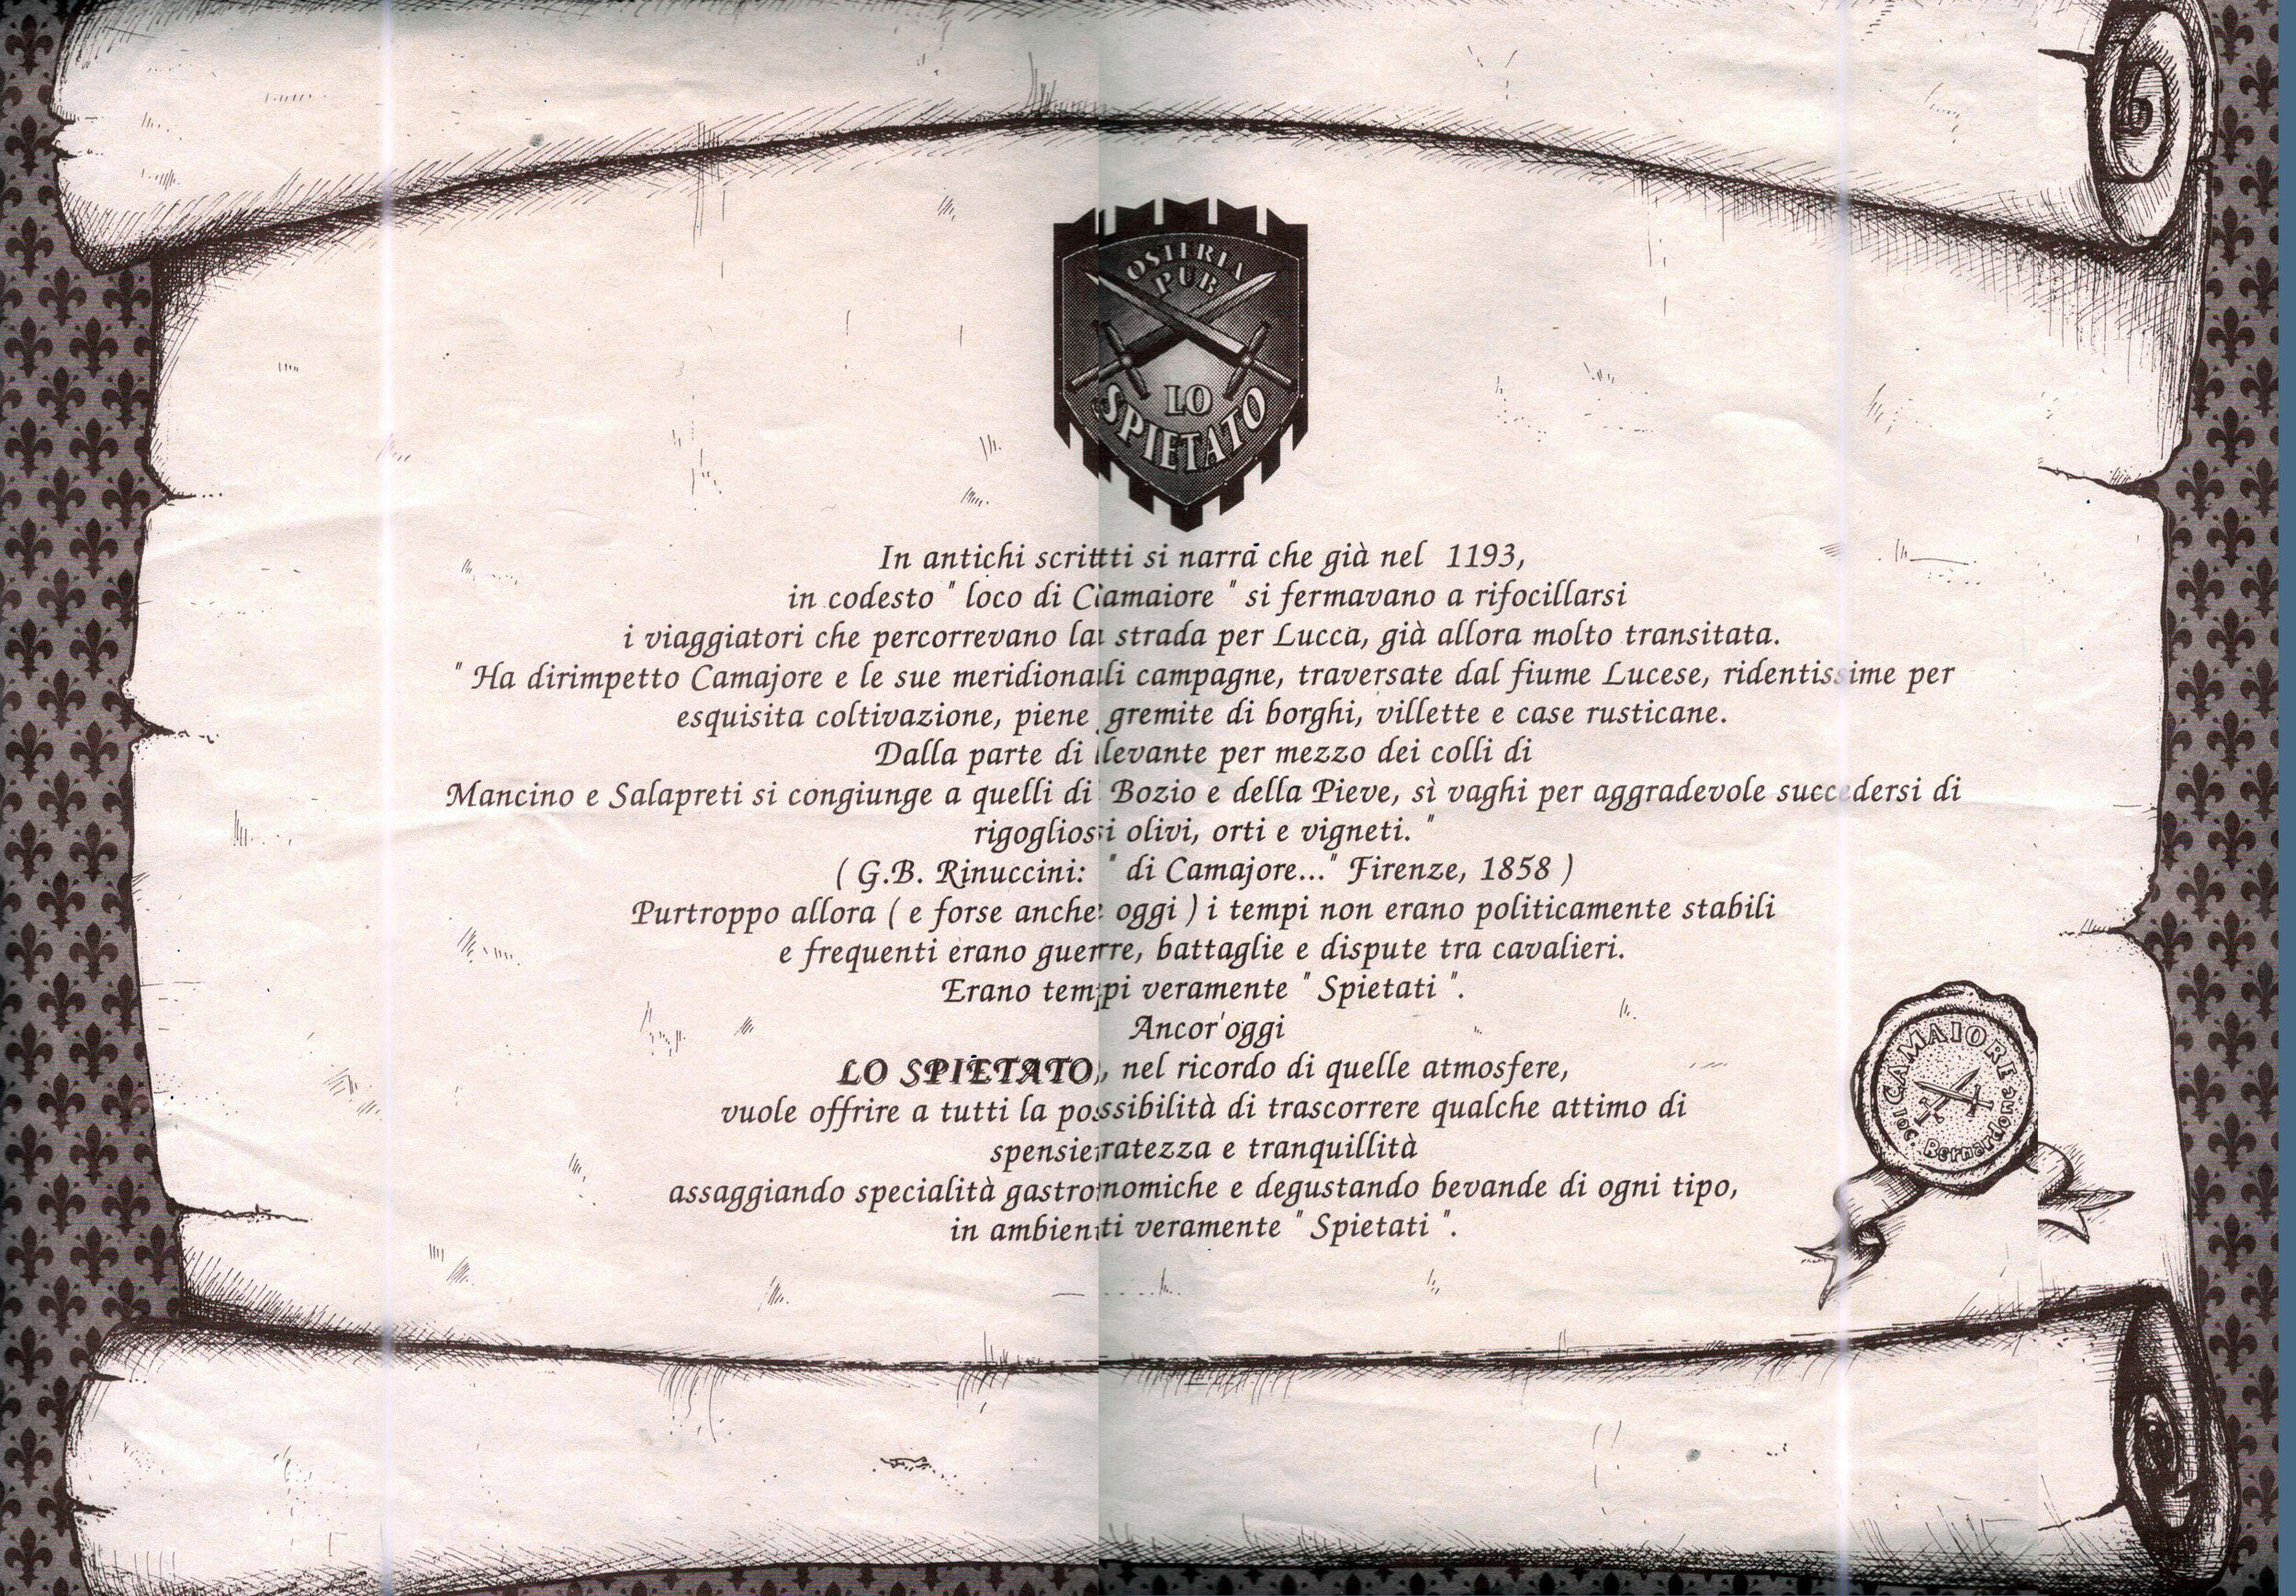 OSTERIA
PUB
LO
SPIETATO
In antichi scritti si narra che già nel 1193,
in codesto " loco di Camaiore " si fermavano a rifocillarsi
i viaggiatori che percorrevano la strada per Lucca, già allora molto transitata.
" Ha dirimpetto Camajore e le sue meridionali campagne, traversate dal fiume Lucese, ridentissime per
esquisita coltivazione, piene gremite di borghi, villette e case rusticane.
Dalla parte di levante per mezzo dei colli di
Mancino e Salapreti si congiunge a quelli di Bozio e della Pieve, sì vaghi per aggradevole succedersi di
rigogliosi olivi, orti e vigneti. "
( G.B. Rinuccini: " di Camajore..." Firenze, 1858 )
Purtroppo allora ( e forse anche oggi ) i tempi non erano politicamente stabili
e frequenti erano guerre, battaglie e dispute tra cavalieri.
Erano tempi veramente " Spietati ".
Ancor'oggi
LO SPIETATO, nel ricordo di quelle atmosfere,
vuole offrire a tutti la possibilità di trascorrere qualche attimo di
spensieratezza e tranquillità
assaggiando specialità gastronomiche e degustando bevande di ogni tipo,
in ambienti veramente " Spietati ".
CAMAIORE
loc. Bernardone